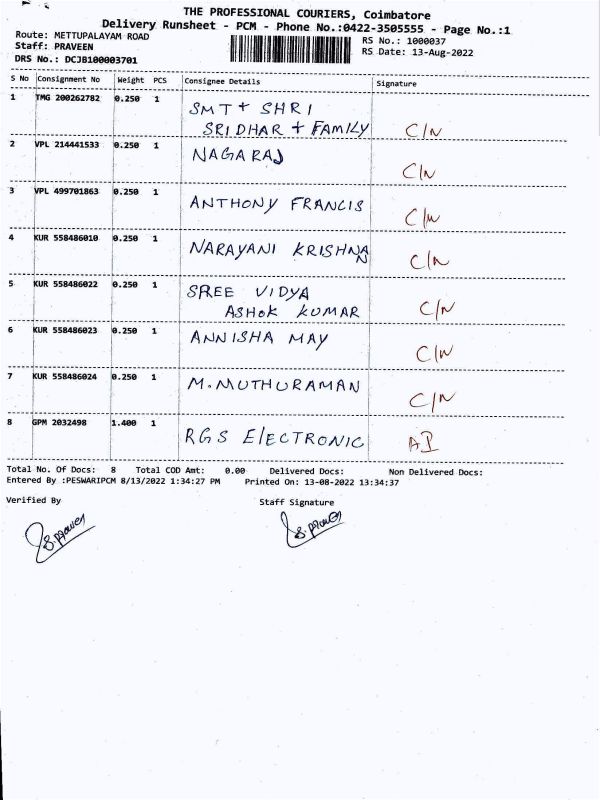 THE PROFESSIONAL COURIERS, Coimbatore
Delivery Runsheet - PCM - Phone No.:0422-3505555 - Page No.:1
Route: METTUPALAYAM ROAD
Staff: PRAVEEN
DRS No.: DCJB100003701
RS No.: 1000037
RS Date: 13-Aug-2022
S No Consignment No Weight PCS Consignee Details Signature
1 TMG 200262782 0.250 1 SMT + SHRI
SRIDHAR + FAMILY C/N
2 VPL 214441533 0.250 1 NAGARAJ C/N
3 VPL 499701863 0.250 1 ANTHONY FRANCIS C/N
4 KUR 558486010 0.250 1 NARAYANI KRISHNAN C/N
5 KUR 558486022 0.250 1 SREE VIDYA
ASHOK KUMAR C/N
6 KUR 558486023 0.250 1 ANNISHA MAY C/N
7 KUR 558486024 0.250 1 M.MUTHURAMAN C/N
8 GPM 2032498 1.400 1 RGS ElECTRONIC
Total No. Of Docs: 8 Total COD Amt: 0.00 Delivered Docs: Non Delivered Docs:
Entered By :PESWARIPCM 8/13/2022 1:34:27 PM Printed On: 13-08-2022 13:34:37
Verified By Staff Signature